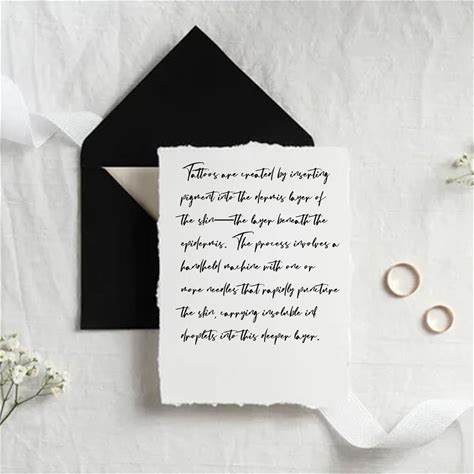 Tattoos are created by inserting
pigment into the dermis layer of
the skin—the layer beneath the
epidermis. The process involves a
handheld machine with one or
more needles that rapidly puncture
the skin, carrying insoluble ink
droplets into this deeper layer.